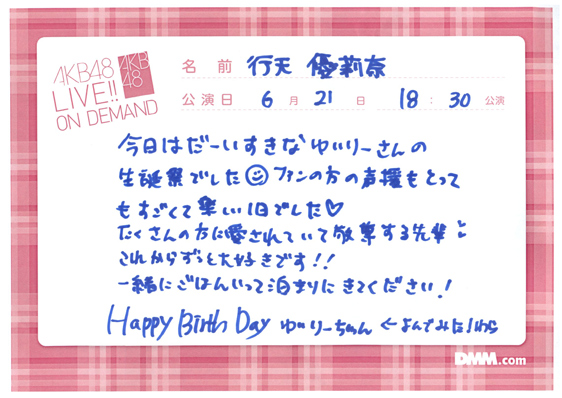 AKB48
LIVE!!
ON DEMAND
AKB
48
名前 行天 優莉奈
公演日 6月21日 18:30公演
今日はだーいすきなゆいりーさんの
生誕祭でした☺ファンの方の声援もとって
もすごくて楽しい1日でした♡
たくさんの方に愛されていて尊敬する先輩
これからずっと大好きです!!
一緒にごはんいって泊まりにきてください!
Happy Birth Day ゆいりーちゃん ←よんでみた!わら
DMM.com